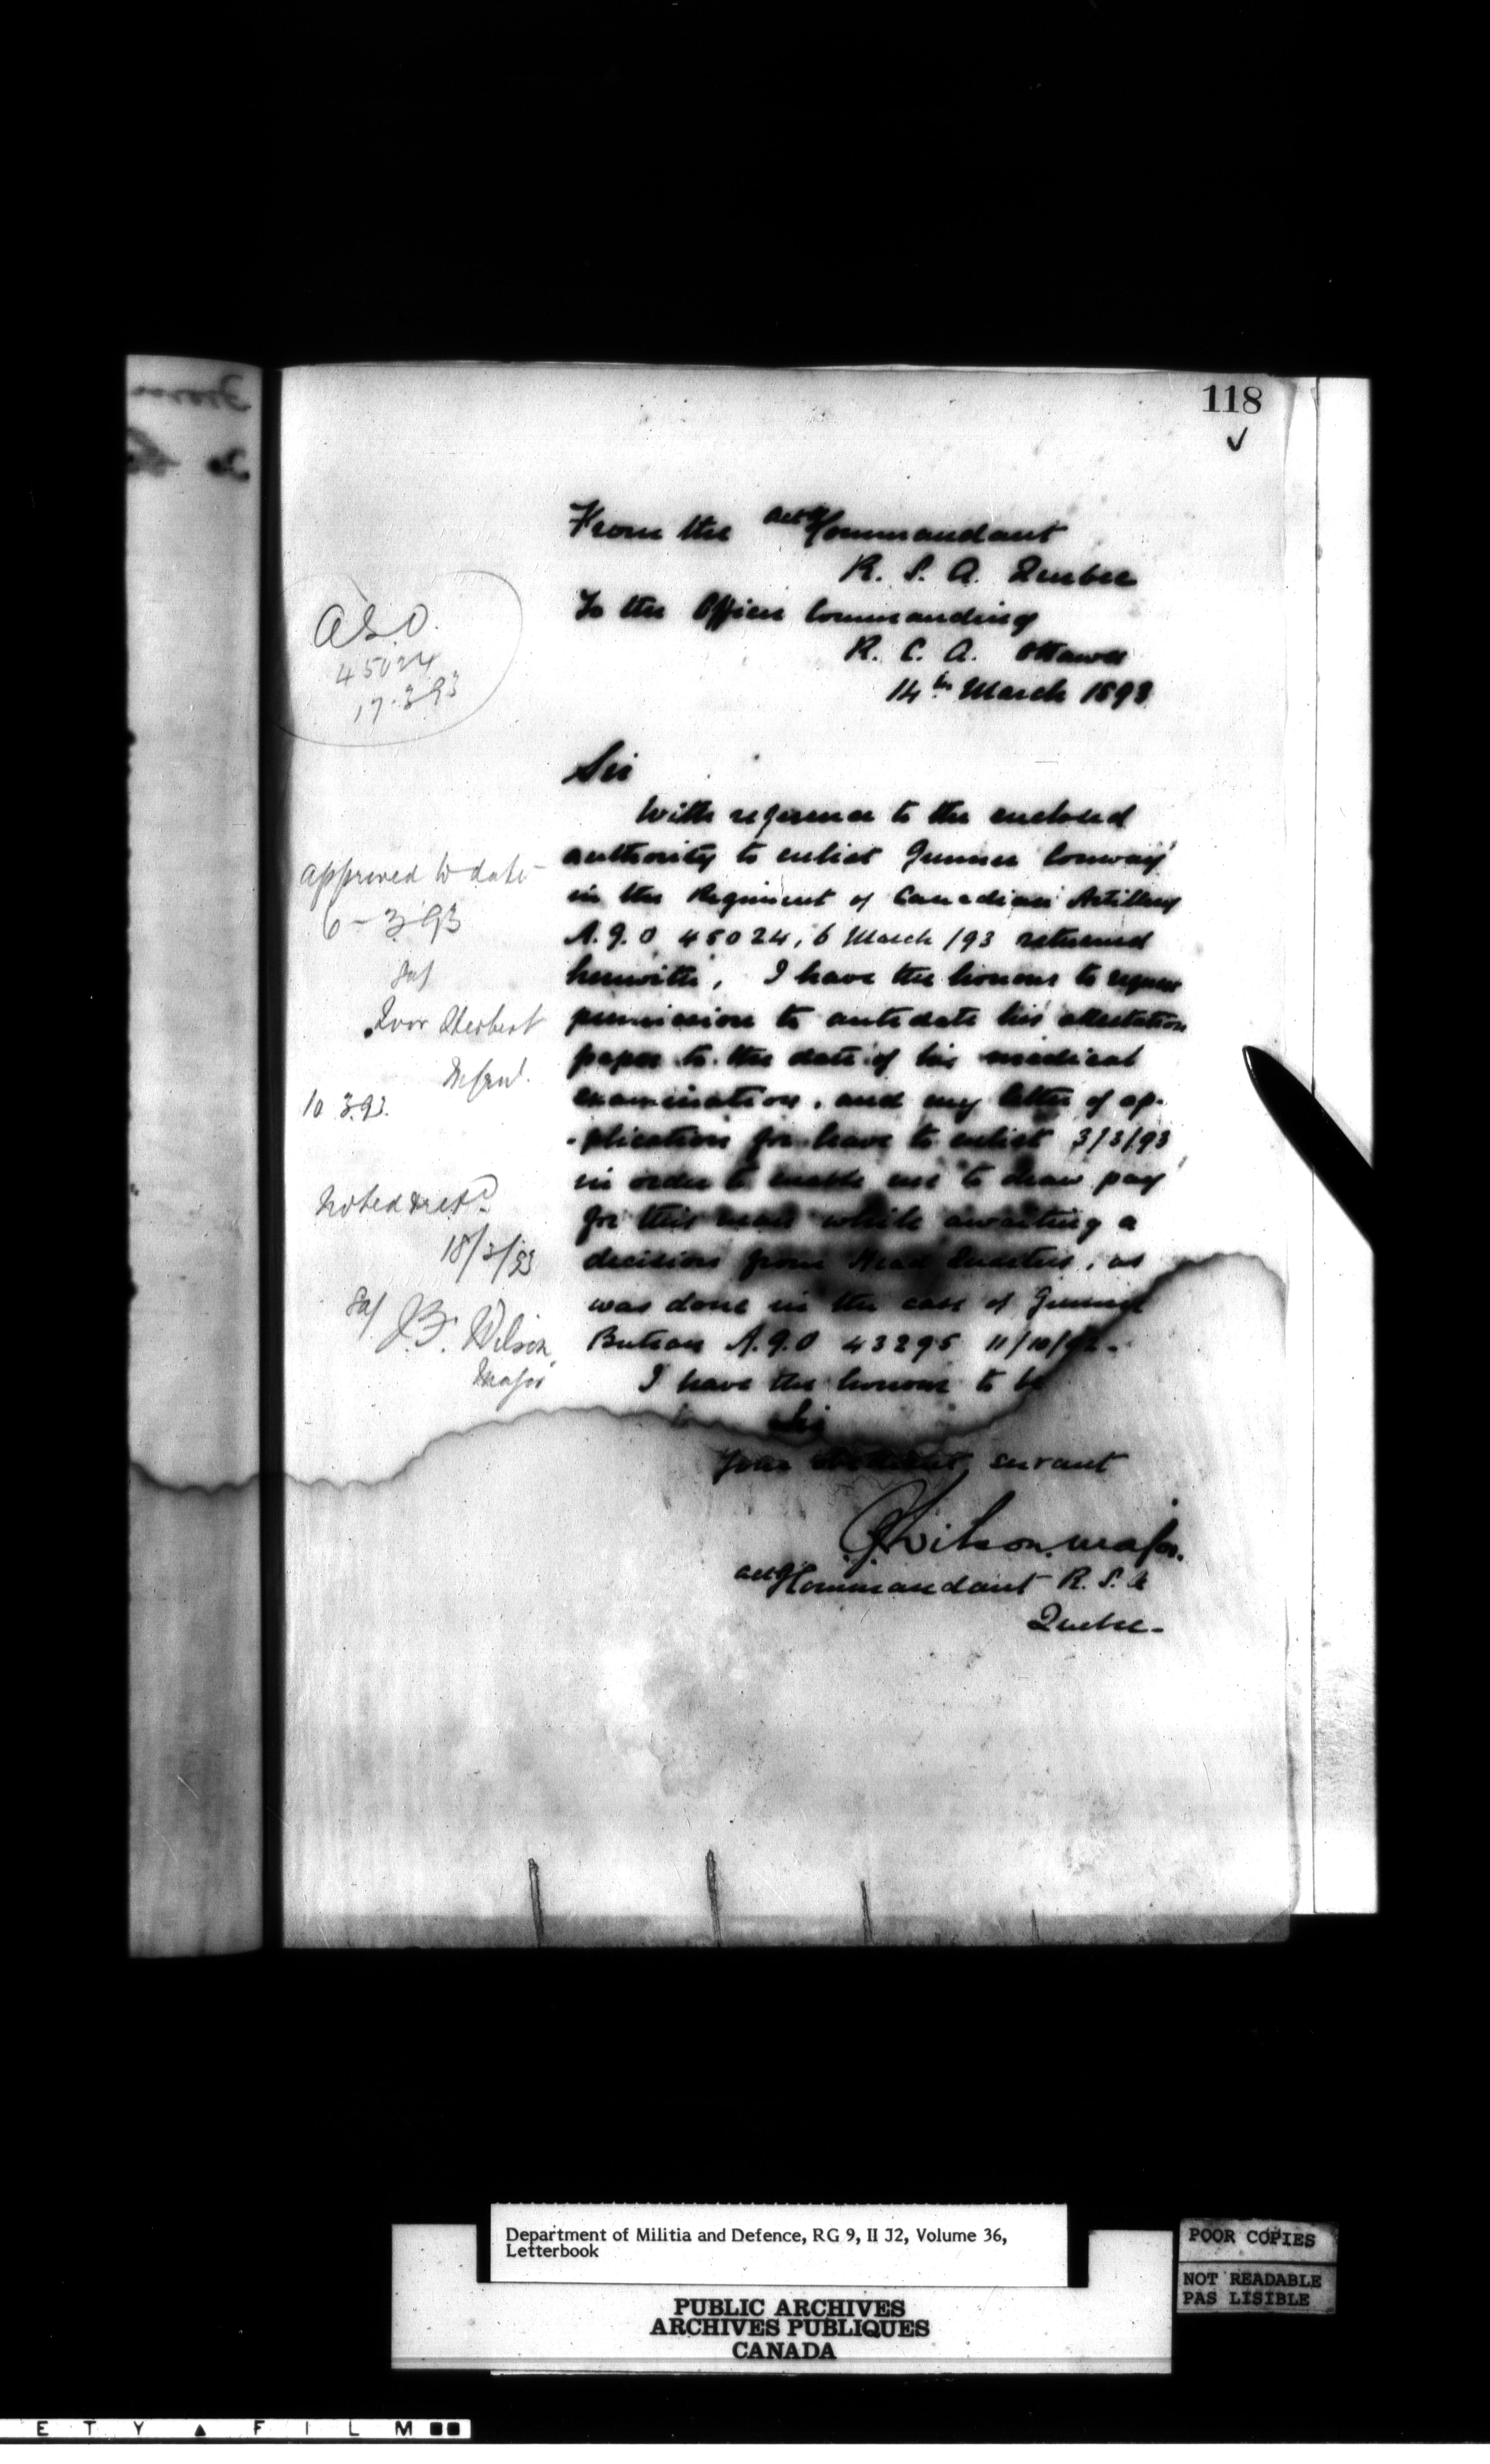 118
From the actg Commandant
R. S. A. Quebec
To the Officer Commanding
R. C. A. Ottawa
14th March 1893
A.G.O.
45024
17.3.93
Sir
With reference to the enclosed
authority to enlist Gunner Conway
in the Regiment of Canadian Artillery
A.G.O 45024, 6 March /93 returned
herewith, I have the honour to request
permission to antedate his attestation
paper to the date of his medical
examination, and my letter of ap-
-plication for leave to enlist 3/3/93
in order to enable me to draw pay
for this man while awaiting a
decision from Head Quarters, as
was done in the case of Gunner
A.G.O 43295 11/10/92.
I have the honour to be
Sir
Your obedient servant
Wilson. Major.
actg Commandant R. S. A
Quebec.
approved to date
6-3.93
Sgd
Ivor Herbert
M. Genl.
10 3.93.
Noted & retd
18/3/93
Sgd J.F. Wilson
Major
Department of Militia and Defence, RG 9, II J2, Volume 36,
Letterbook
PUBLIC ARCHIVES
ARCHIVES PUBLIQUES
CANADA
POOR COPIES
NOT READABLE
PAS LISIBLE
E T Y ▲ F I L M